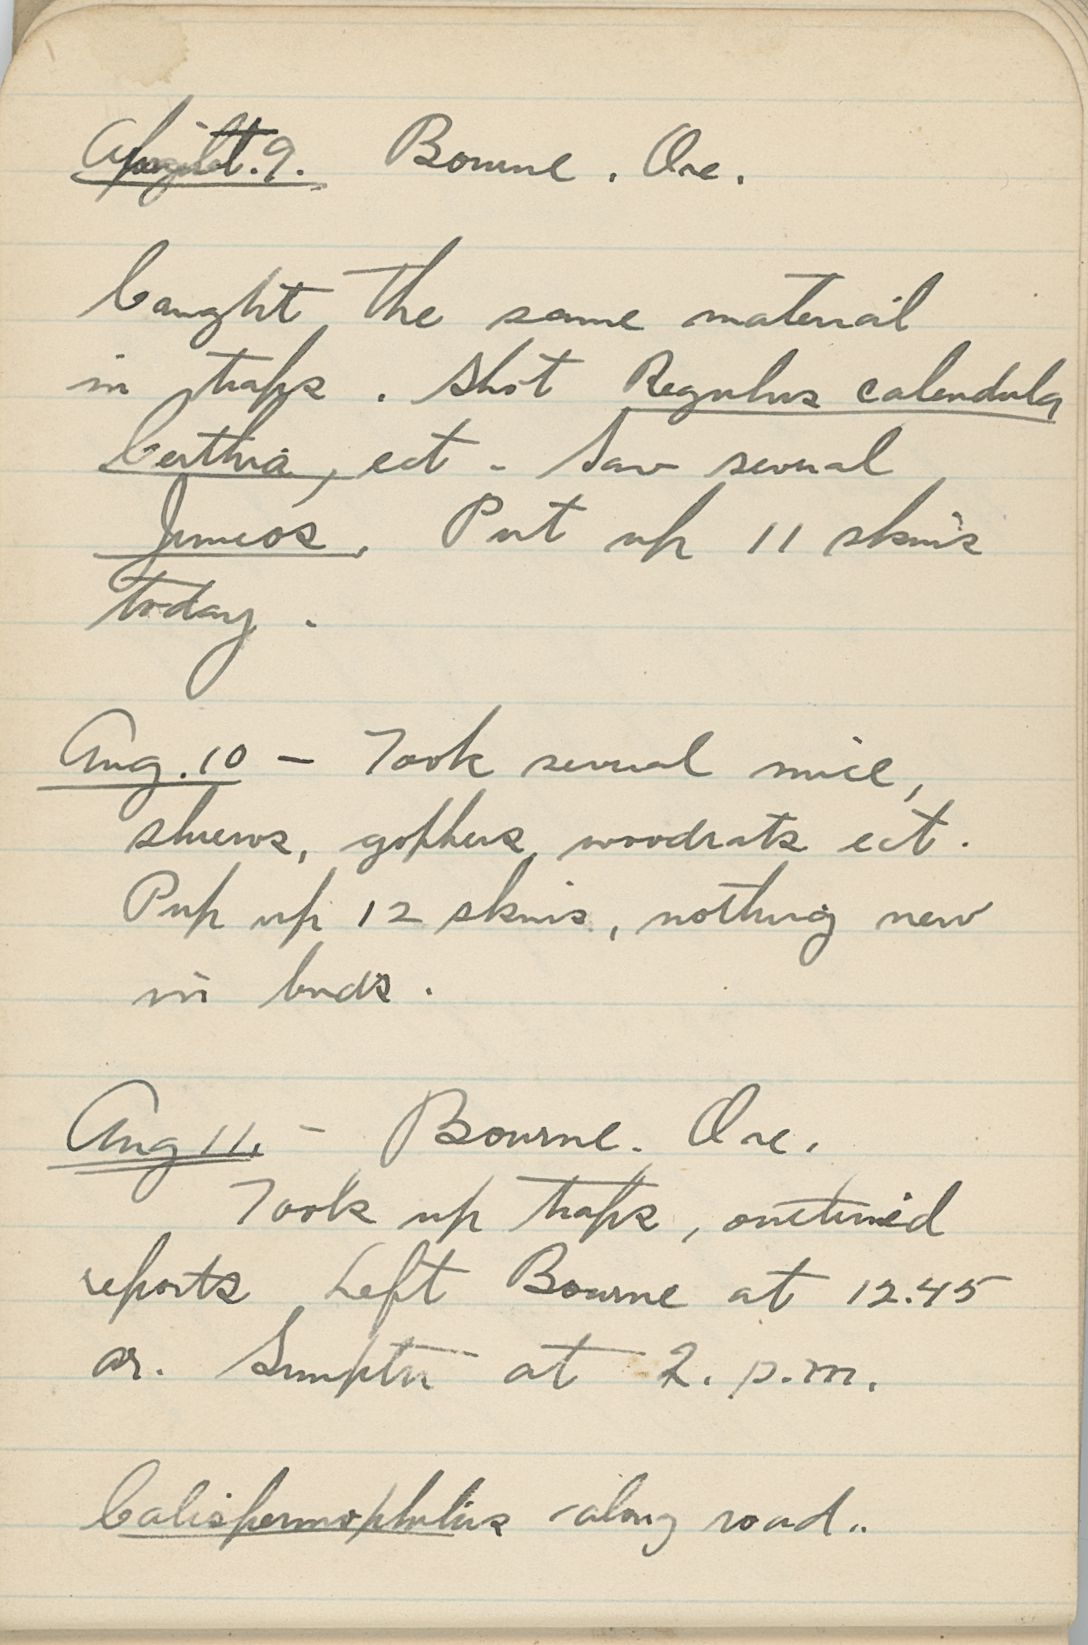 August. 9. Bourne. Ore.
Caught the same material
in traps. Shot Regulus calendula
Certhia, ect - Saw several
Juncos. Put up 11 skins
today.
Aug. 10 - Took several mice,
shrews, gophers, woodrats ect.
Pup up 12 skins, nothing new
in birds.
Aug 11. - Bourne. Ore.
Took up traps,
reports Left Bourne at 12.45
ar. Sumpter at 2. p.m.
Calispermophilus along road..